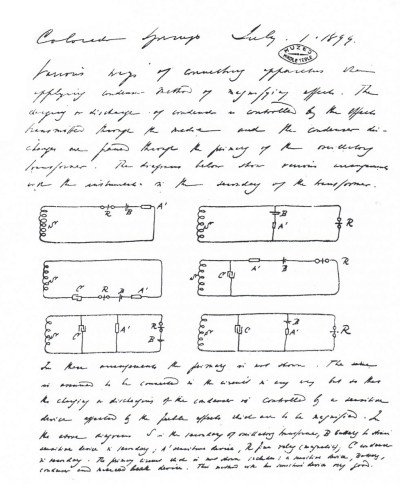 Colorado Springs July. 1. 1899.
MUZEJ
NIKOLE TESLE
Various ways of connecting apparatus when
applying condenser method of magnifying effects. The
charging or discharge of condenser is controlled by the effects
transmitted through the media and the condenser dis-
charges are passed through the primary of the oscillatory
transformer. The diagrams below show various arrangements
with the instruments in the secondary of the transformer.
S R B A'
S B A' R
S C R B A'
S C A' B R
S C A' R B
S C B A' R
In these arrangements the primary is not shown. The same
is assumed to be connected in the circuit in any way but so that
the charging or discharging of the condenser is controlled by a sensitive
device affected by the feeble effects which are to be magnified. In
the above diagrams S is the secondary of oscillatory transformer, B battery to strain
sensitive device in secondary, A' sensitive device, R relay (magnetic), C condenser
in secondary. The primary circuit which is not shown includes a sensitive device, battery,
condenser and break device. This method with sensitive device very good.